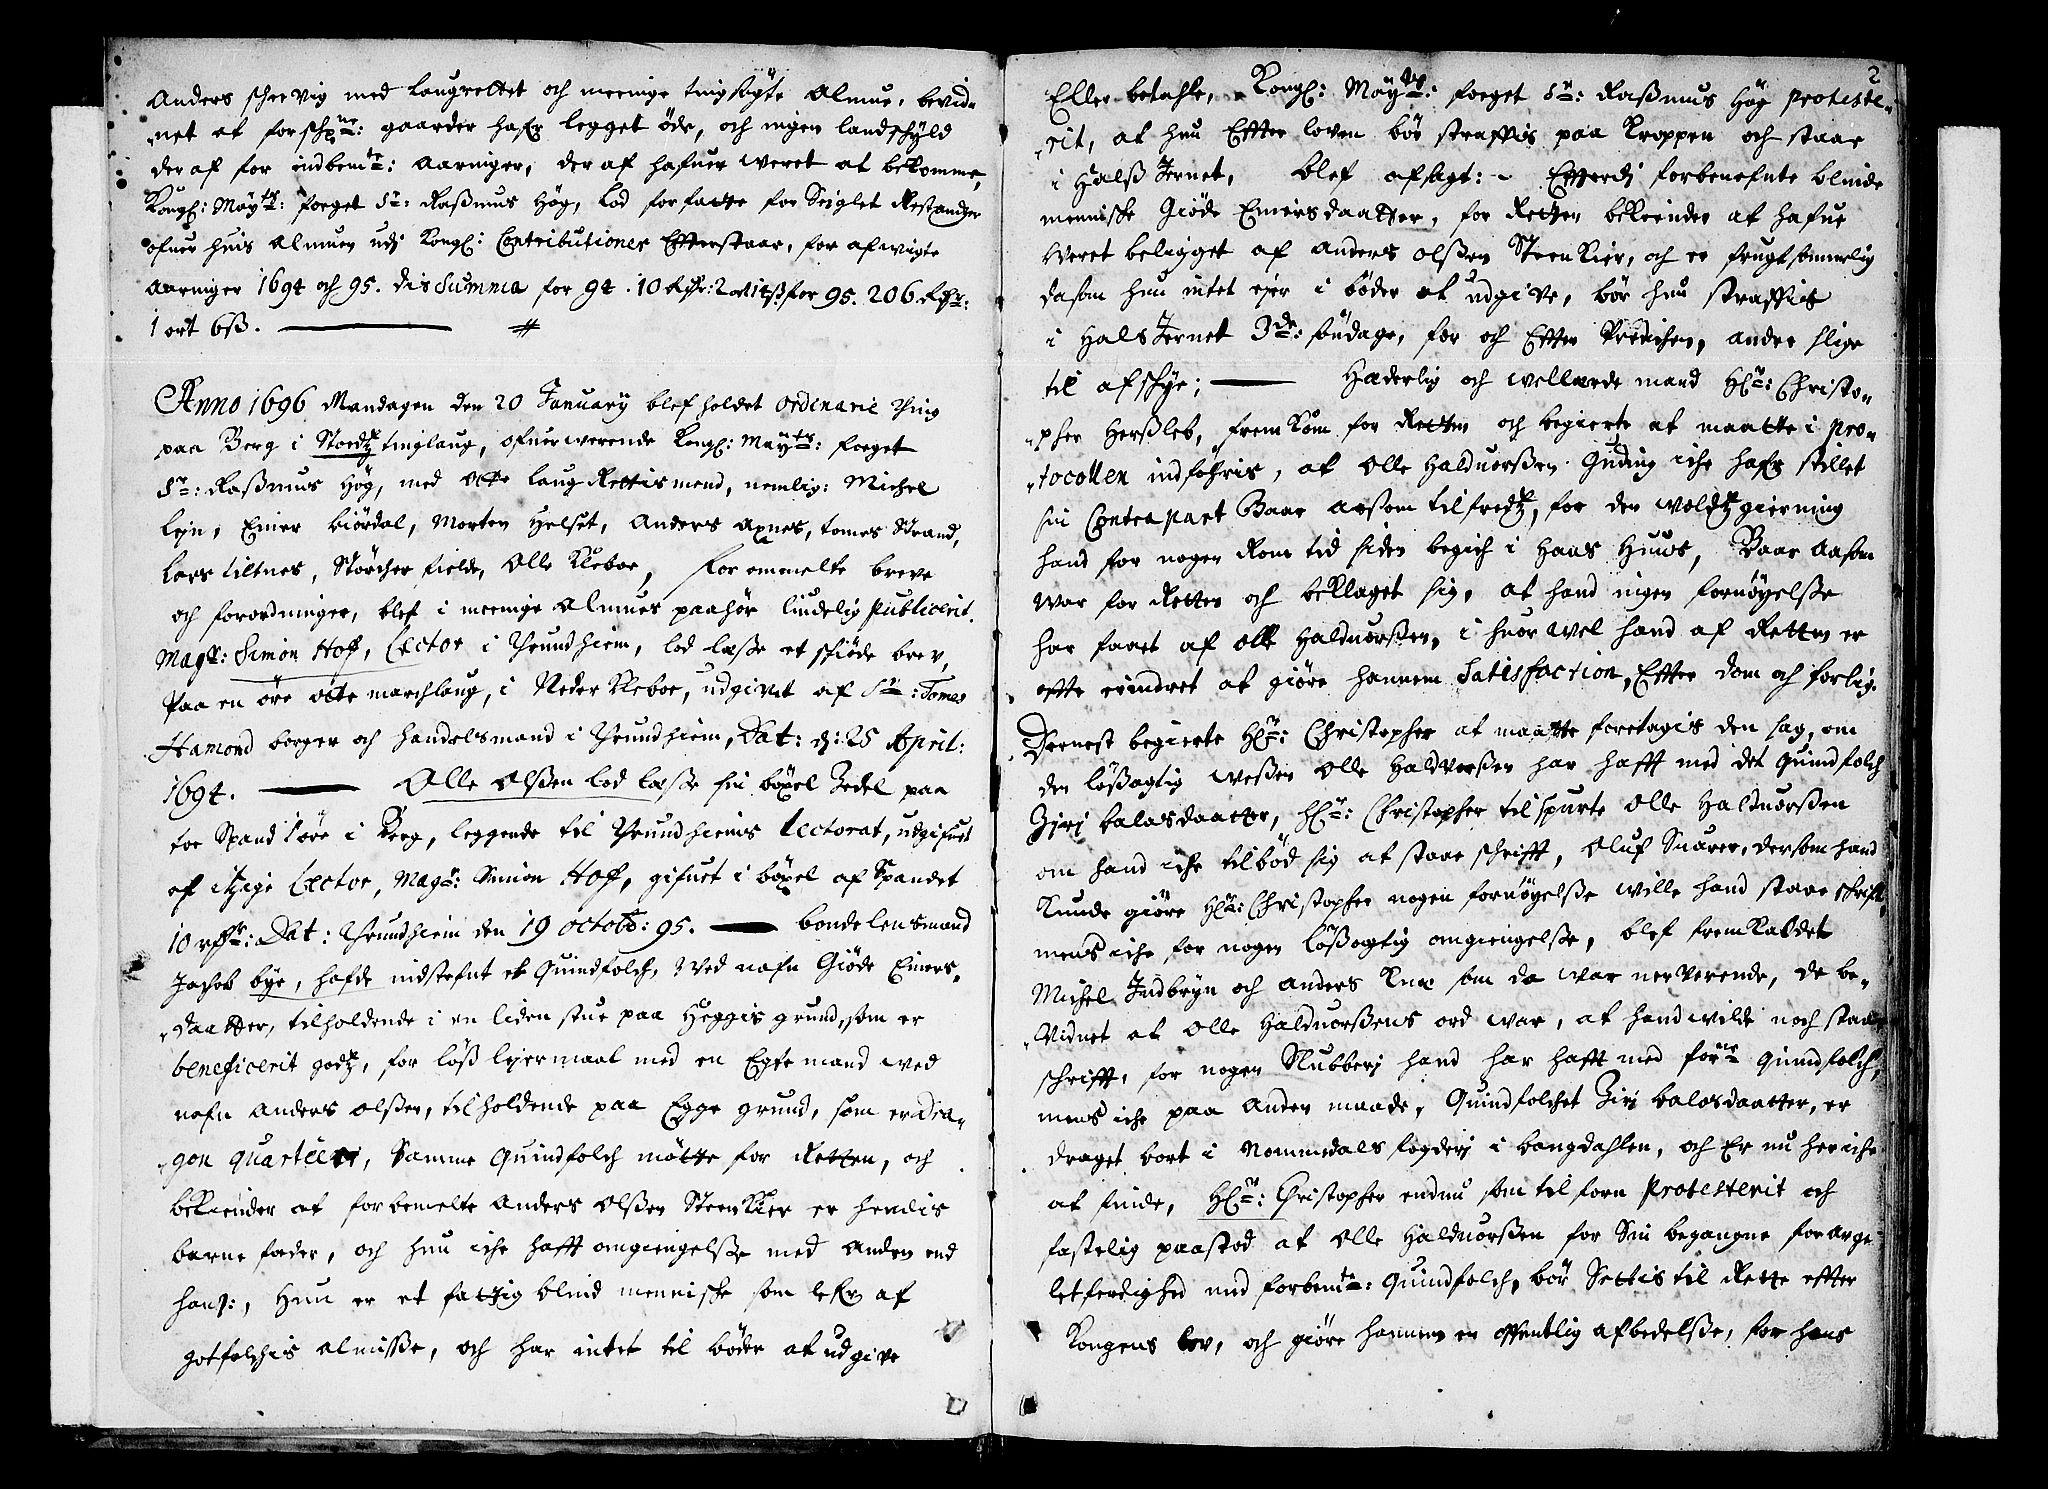 Anders schrevig med laugrettet och meenige tingsøgte Almue, bevid„
„net at forschne: gaarder hafr legget øde, och ingen landschÿld
der af for indbemte: Aaringer, der af hafuer weret at bekomme,
Kongl: Maÿts: foeget Sr: Raßmus Høg, lod forfatte for Seiglet Restandz
ofuer huis Almuen udj Kongl: Contributioner Efterstaar, for afwigte
Aaringer 1694 och 95. dis Summa for 94. 10 Rdr: 2 ort 4ß for 95. 206 Rdr:
1 ort 6ß.
Anno 1696 Mandagen den 20 Januarÿ blef holdet ordinarie Ting
paa Berg i Stoedtz tinglaug, ofuerwerende Kongl: Maÿts: foeget
Sr: Raßmus Høg, med otte laug Rettismend, nemlig: Michel
Bye, Einer Kiørdal, Morten Helset, Anders Axnes, tomes Strand,
Lars tiltnes, Størcher fielde, Olle Kleboe, forommelte breve
och forordninger, blef i meenige Almues paahør liudelig Publicerit.
Magr: Simon Hoff, Lector i Trundhiem, lod læse et schiøde brev,
Paa en øre otte marchlaug, i Neder Kleboe, udgivet af Sr: Tomas
Hamond borger och handelsmand i Trundhiem, Dat: d: 25 April:
1694. Olle Olßen lod læse sin bøxel Zedel paa
toe Spand 1 øre i Berg, leggende til Trundhiems Lectorat, udgifuet
af itzige Lector, Magr: Simon Hoff, gifuet i bøxel af Spandet
10 rdr: Dat: Trundhiem den 19 octob: 95. bondelensmand
Jachob bye, hafde indstefnt et Quindfolch, Wed nafn Giøde Einers„
„daatter, tilholdende i en liden stue paa Heggis grund, som er
beneficerit godtz, for løß leyermaal med en Egte mand wed
nafn Anders Olßen, tilholdende paa Egge grund, som er Dra„
„gon quarteer, Samme Quindfolch møtte for Retten, och
bekiender at forbemelte Anders Olßen Steenkier er hendis
barne fader, och hun iche hafft omgiengelsse med anden end
hans:, Hun er et fattig blind menniske som lefr af
gotfolchis almisse, och har intet til bøder at udgive
2
Eller betahle, Kongl: Maÿts: foeget Sr: Raßmus Høg proteste„
„rit, at hun Effter loven bør straffis paa Kroppen och staar
i Halß Jernet, blef afsagt: Efterdj forbenefnte blinde
menniske Giøde Einersdaatter, for Retten bekiender at hafue
Weret beligget af Anders olßen SteenKier, och er frugtsommelig
dasom hun intet ejer i bøder at udgive, bør hun straffis
i Hals Jernet 3de: søndage, for och Efter Predichen, andre slige
til afschye; Hæderlig och wellærde mand Hl: Christo„
„pher Herßleb, fremkom for Retten och begierte at maatte i pro„
„tocollen indføhris, at Olle Halduorßen Guding iche hafr stillet
sin Contrapart Baar aasom tilfredtz, for den woldtz gierning
hand for nogen Rom tid siden begich i Haas Huus, Baar Aasom
war for Retten och beklaget sig, at hand ingen fornøyelsse
har faaet af Olle Halduorßen, i huor wel hand af Retten er
offte erindret at giøre hannem Satisfaction, Effter dom och forlig.
Dernest begierte Hr: Christopher at maatte foretagis den sag, om
den løßagtig weßen Olle Haldvorßen har hafft med det Quindfolch
Zirj balasdaatter, Hr: Christopher tilspurte Olle Halduorßen
om hand iche tilbød sig at staae schrifft, Oluf Suarer, dersom hand
Kunde giøre Hr: Christopher nogen fornøyelsse wille hand staae schrifft,
mens iche for nogen løßagtig omgiengelsse, blef fremkaldet
Michel Indbryn och Anders Kne som da war nerverende, de be„
„Vidnet at Olle Halduorßens ord war, at hand wilde noch staae
schrifft, for nogen Slubberj hand har hafft med forne Quindfolch,
mens iche paa anden maade, Quindfolchet Zirj balasdaatter, er
draget bort i Nommedals fogderj i bangdahlen, och Er nu her iche
at finde, Hr: Christopher endnu som tilforn Protesterit och
fastelig paastod at Olle Halduorßen for Sin begangne forarge
letferdighed med forbemte: Quindfolch, bør Settis til Rette effter
Kongens lov, och giøre hannem en offentlig afbedelsse, for hans